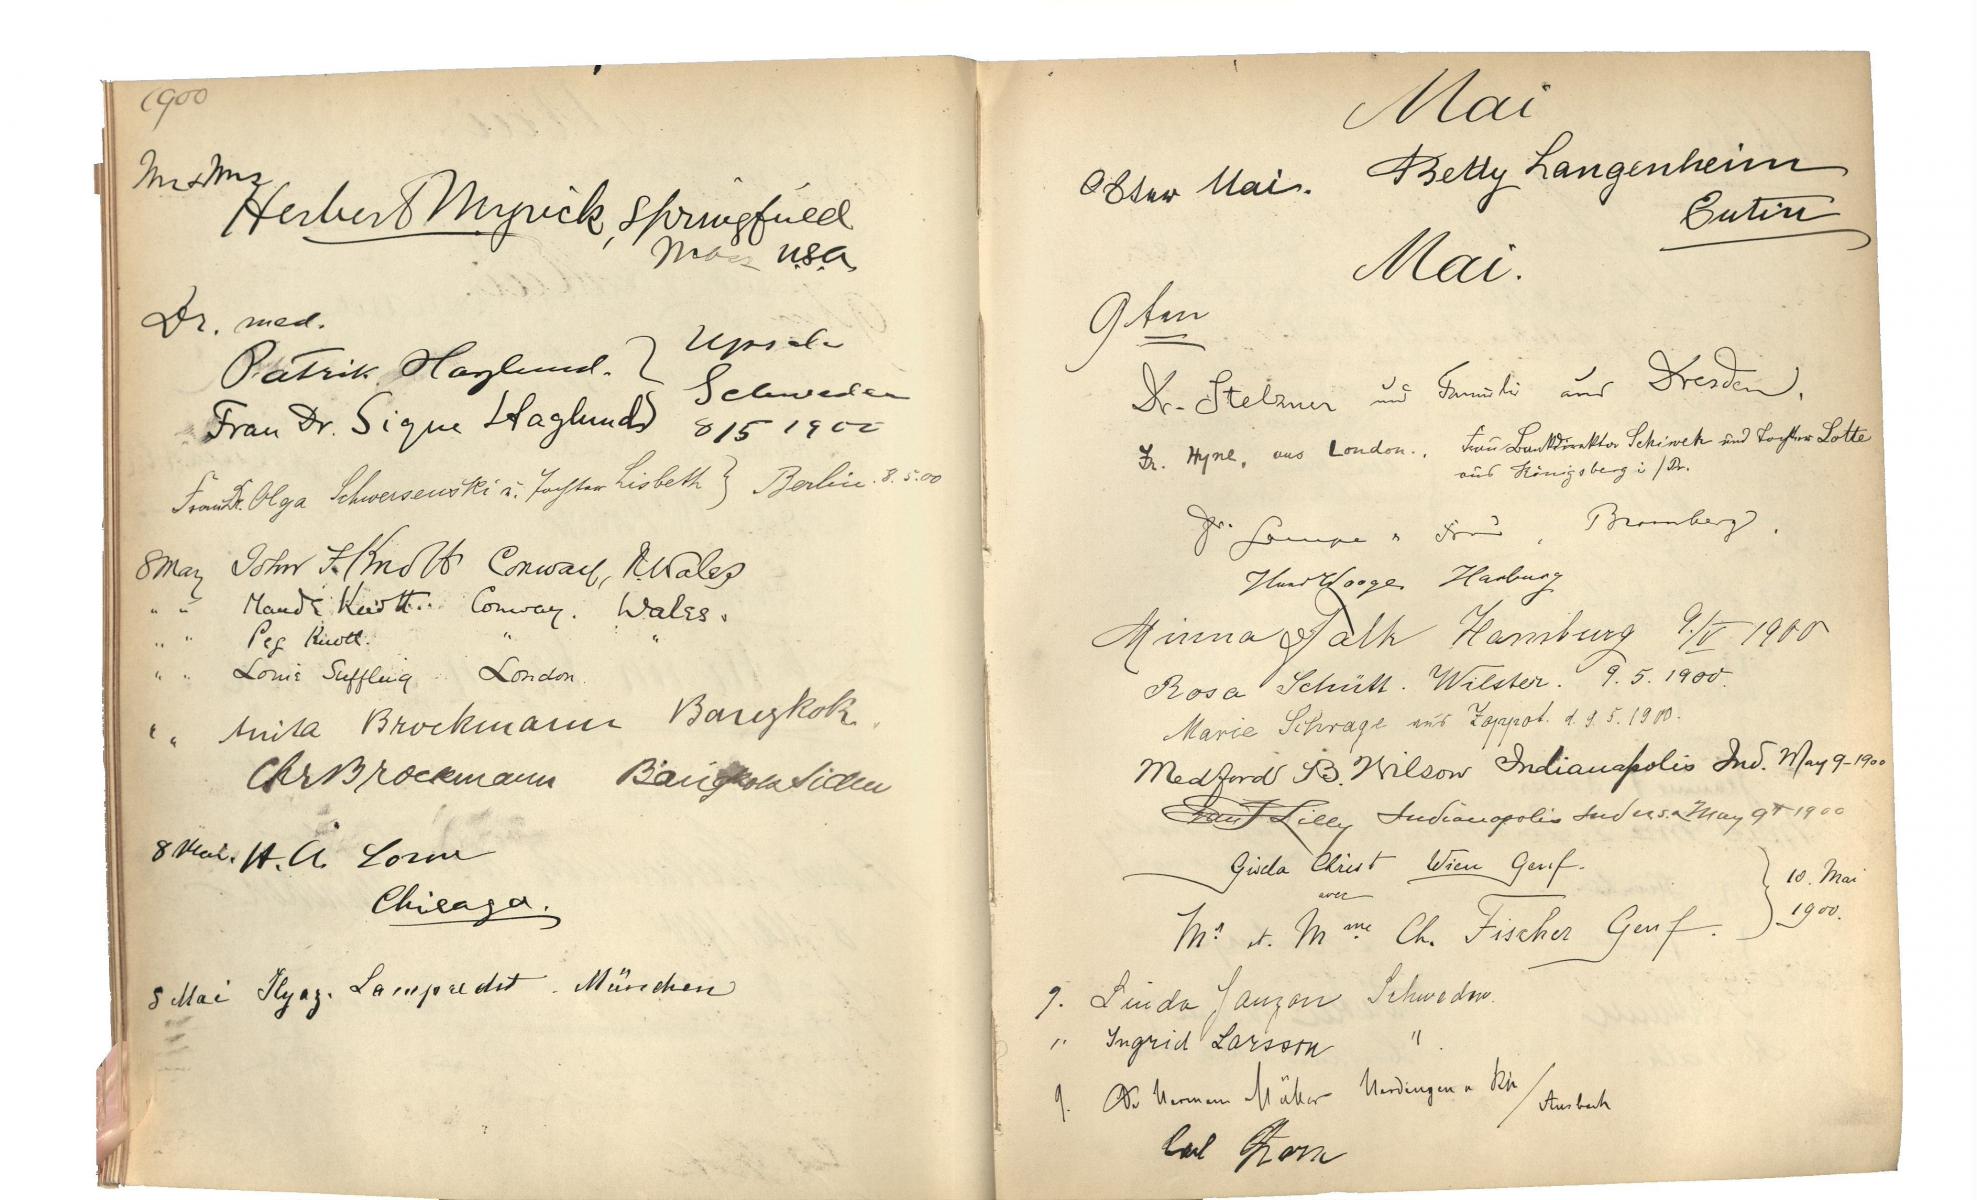 1900
Mr & Mrs
Herbert Myrick, Springfield
Mass USA
Dr. med.
Patrik Haglund. } Upsala
Schweden
Frau Dr. Signe Haglund 8/5 1900
Frau Dr. Olga Schwersenski u. Tochter Lisbeth } Berlin. 8.5.00
8 May John F. Knott Conway, N. Wales
" " Maude Knott. Conway. Wales.
" " Peg Knott. " "
" " Louie Suffling London
" " Anita Brockmann Bangkok.
Chr Brockmann Bangkok Siam
8 Mai. H. A.
Chicago.
8 Mai Lamprecht. München
Mai
8ter Mai. Betty Langenheim
Eutin
Mai.
9ten
Dr. Stelzner und Familie aus Dresden.
Fr. Hyne, aus London. Frau Bankdirektor Schiwek und Tochter Lotte
aus Königsberg i/Pr.
Dr. Lampe u Frau, Bromberg.
Hans Wooge Harburg
Minna Falk Hamburg 9/V 1900
Rosa Schütt. Wilster. 9.5.1900.
Marie Schrage aus Zoppot. d. 9.5.1900.
Medford B. Wilson Indianapolis Ind. May 9-1900
Lilly Indianapolis Ind USA May 9th 1900
Gisela Christ Wien Genf.
avec
Mr et Mme Ch. Fischer Genf. } 10. Mai
1900.
9. Linda Janzon Schweden.
" Ingrid Larsson "
9. Dr Hermann Müller Uerdingen a Rh / Ansbach
Carl